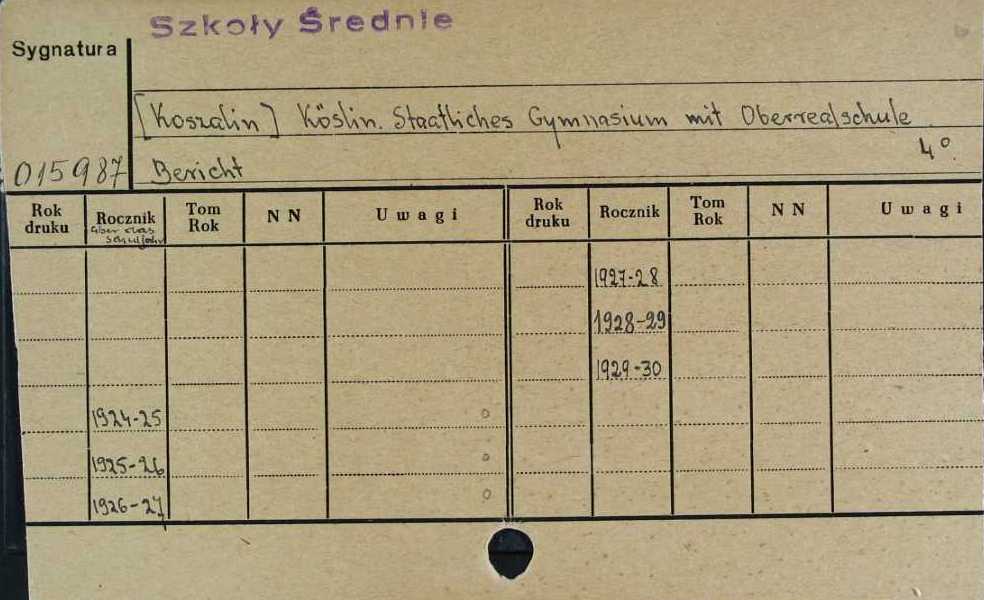 Szkoły Średnie
Sygnatura
[Koszalin] Köslin. Staatliches Gymnasium mit Oberrealschule
4°
015987 Bericht
Rok druku Rocznik über das Schuljahr Tom Rok NN Uwagi Rok druku Rocznik Tom Rok NN Uwagi
1927-28
1928-29
1929-30
1924-25 o
1925-26 o
1926-27 o